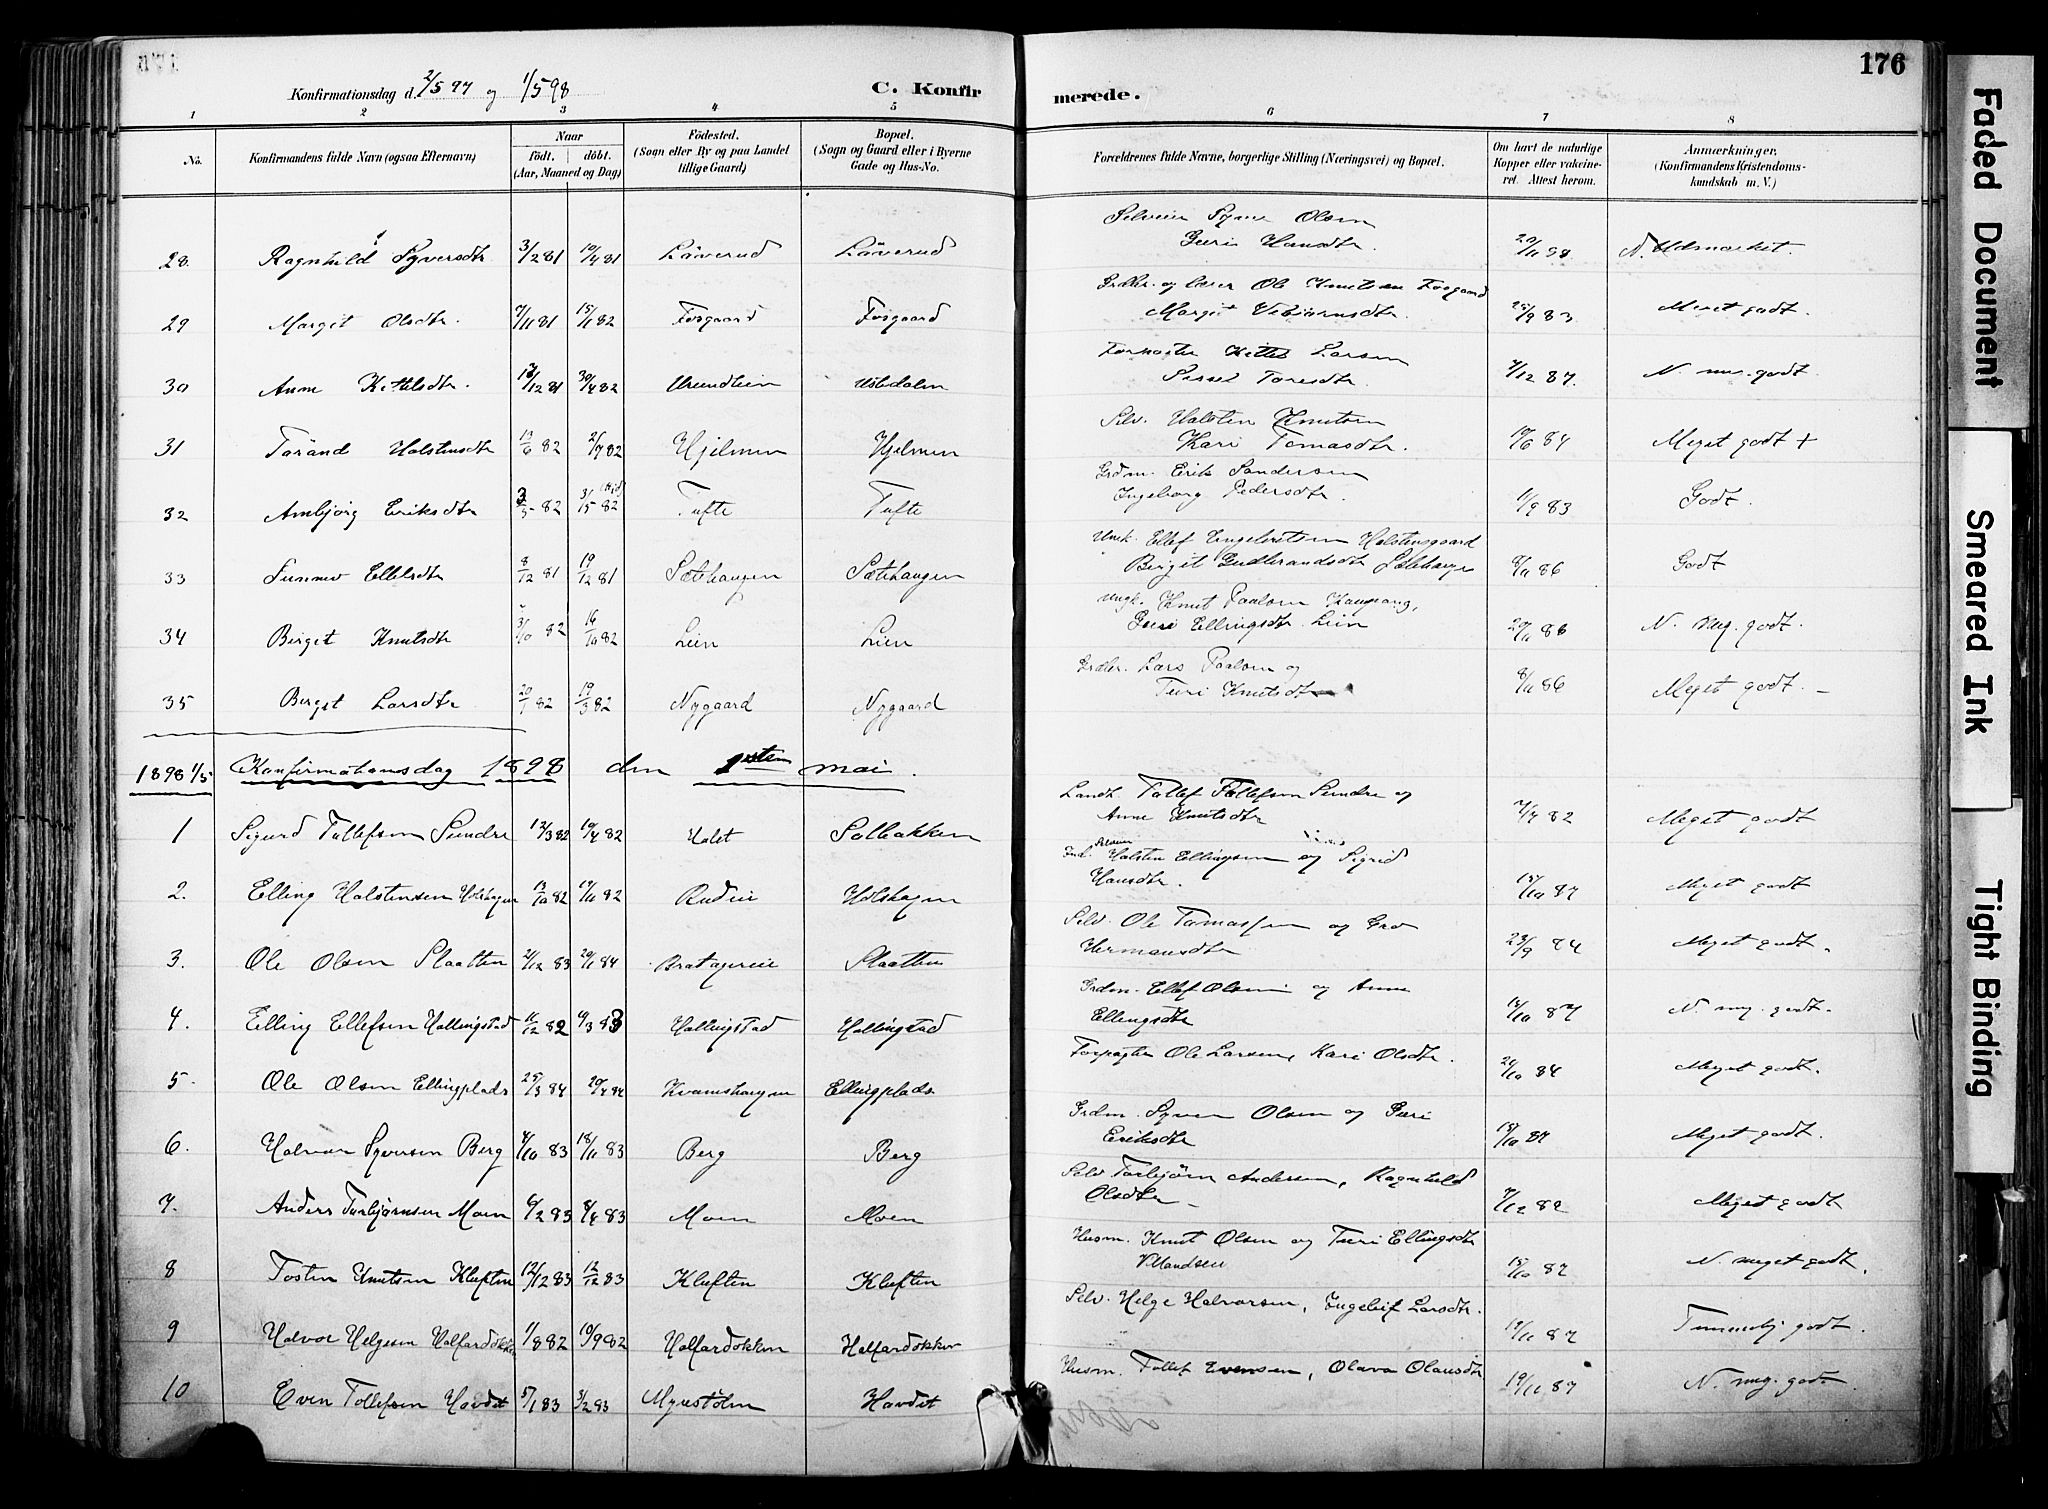 176
Konfirmationsdag d. 2/5 97 og 1/5 98
C. Konfirmerede.
1 2 3 4 5 6 7 8
No.
Konfirmandens fulde Navn (ogsaa Efternavn)
Naar
födt. döbt.
(Aar, Maaned og Dag)
Födested.
(Sogn eller By og paa Landet
tillige Gaard)
Bopæl.
(Sogn og Gaard eller i Byerne
Gade og Hus-No.
Forældrenes fulde Navne, borgerlige Stilling (Næringsvei) og Bopæl.
Om havt de naturlige
Kopper eller vakcine-
ret. Attest herom.
Anmærkninger.
(Konfirmandens Kristendoms-
kundskab m. V.)
Olsen
28. Ragnhild Syversdtr 3/2 81 10/4 81 Löverud Löverud Guri Hansdtr. Udmærket.
Ole Knutsen Fosgaard
29 Margit Olsdtr. 7/11 81 15/1 82 Fosgaard Fosgaard Margit 25/9 83 Meget godt.
Forpagter Kittel Larsen
30 Anne Kittelsdtr. 12/81 30/4 82 Sissel Toresdtr. 7/12 87. N. meg. godt.
Selv. Halsten Knutsen
31 Halstensdtr 13/6 82 2/7 82 Hjelmen Hjelmen Kari Tomasdtr. 10/6 84 Meget godt +
Grdm. Erik Sandersen
32 Ambjörg Eriksdtr 3/5 82 82 Tufte Tufte Ingeborg Pedersdtr. 1/9 83 Godt.
Ungk. Ellef Engebretsen Halstensgaard
33 8/12 81 19/12 81 Sætehaugen Sætehaugen Birgit Gudbrandsdtr 8/11 86 Godt
Ungk. Knut Paalsen
34 Birgit Knutsdtr 3/10 82 16/10 82 Lien Lien Guri Ellingsdtr. Lien 20/11 86 N. meg. godt.
Lars Paalsen og
35 Birgit Larsdtr 20/1 82 19/3 82 Nygaard Nygaard Turi Knutsdtr 8/11 86 Meget godt. —
1898 1/5 Konfirmationsdag 1898 den 1sten mai.
Tollef Tollefsen Sundre og
1 Sigurd Tollefsen Sundre 12/3 82 10/4 82 Holet Solbakken Anne Knutsdtr 7/7 82 Meget godt
Halsten Ellingsen og Sigrid
2. Elling Halstensen Holshagen 13/10 82 19/11 82 Rudiie Holshagen Hansdtr. 15/10 87 Meget godt
Selv. Ole Tomassen og Gro
3. Ole Olsen Slaatten 21/12 83 20/1 84 Slaatten Hermansdtr 23/9 84 Meget godt.
Grdm. Ellef Olsen og Anne
4. Elling Ellefsen Hallingstad 11/12 82 6/3 83 Hallingstad Hallingstad Ellingsdtr 15/10 87 N. meg. godt.
Forpagter Ole Larsen, Kari Olsdtr.
5. Ole Olsen Ellingplads 25/3 84 20/4 84 Kvamshaugen Ellingplads 20/10 84 Meget godt.
Grdm. Syver Olsen og Guri
6. Halvor Syversen Berg 4/10 83 18/11 83 Berg Berg Eriksdtr 15/10 87 Meget godt.
Selv Torbjörn Andersen, Ragnhild
7. Anders Torbjörnsen Moen 6/2 83 8/4 83 Moen Moen Olsdtr — 7/12 82 Meget godt
Husm. Knut Olsen og Turi Ellingsdtr
8 Tosten Knutsen Kluften 12/12 83 Kluften Kluften 15/10 87 N. meget godt.
Selv. Helge Halvorsen, Ingeleif Larsdtr.
9 Halvor Helgesen Halfardokken 1/8 82 10/9 82 Halfardokken Halfardokken 19/11 87 Temmelig godt.
Husm. Tollef Evensen, Olava Olausdtr
10 Even Tollefsen Havdet 5/1 83 3/2 83 Myrestölen Havdet 19/11 87 N. meg. godt.
Faded Document
Smeared Ink
Tight Binding